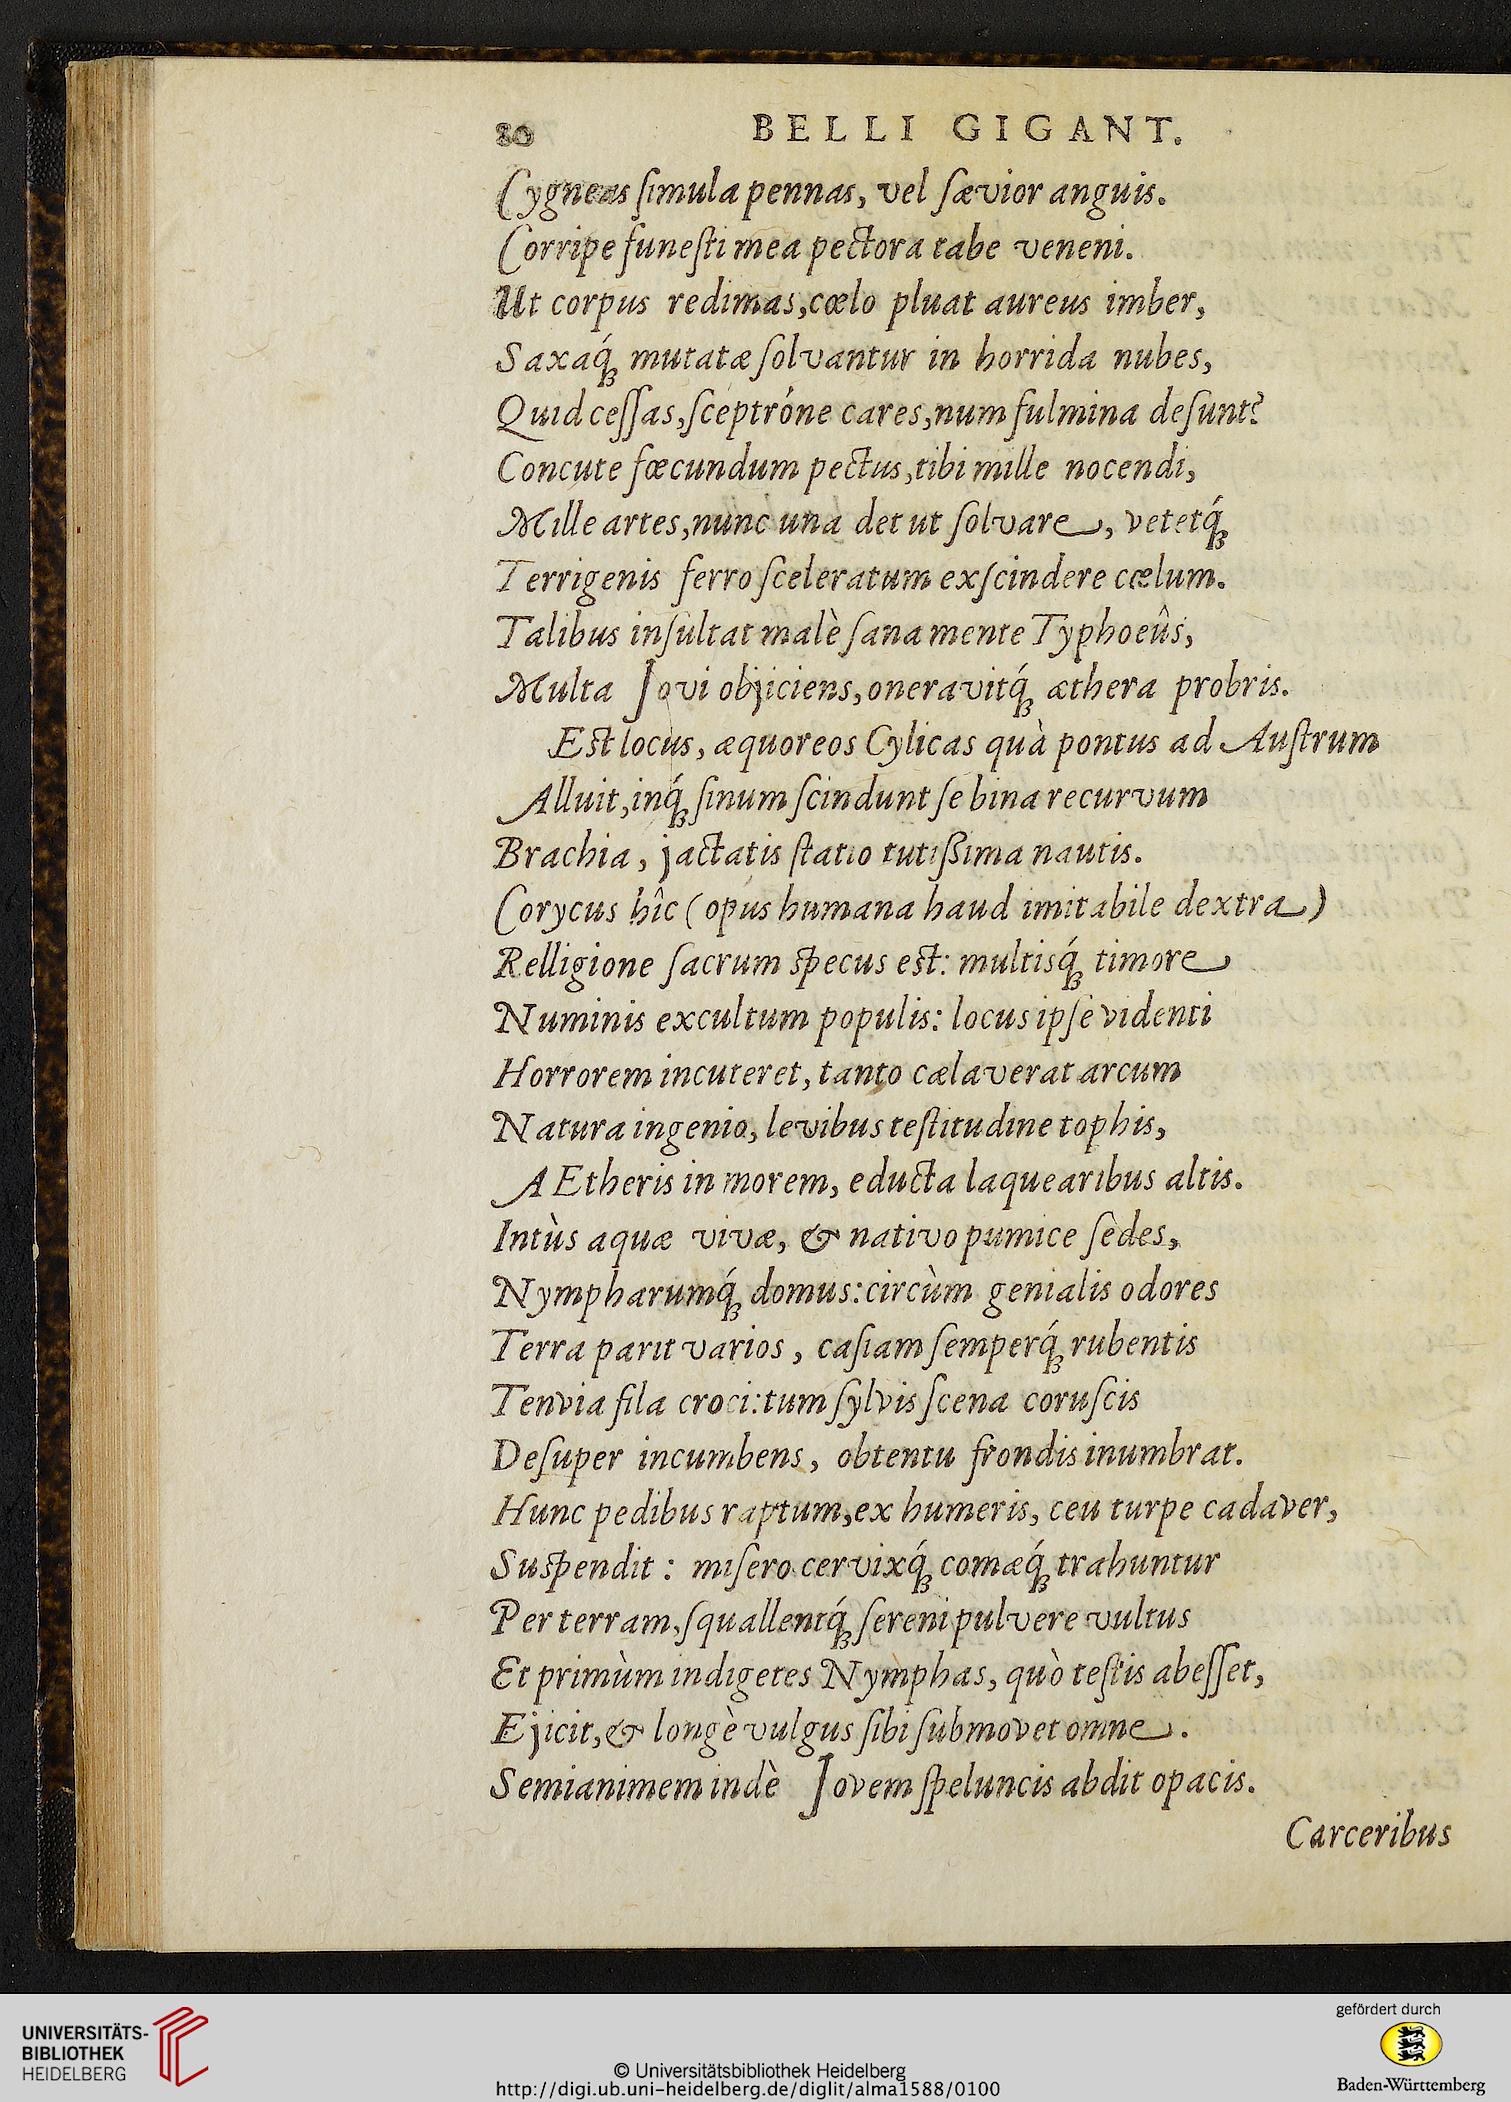 80 BELLI GIGANT.
Cygneas ſimula pennas, vel ſævior anguis.
Corripe funeſti mea pectora tabe veneni.
Ut corpus redimas, cœlo pluat aureus imber,
Saxaq́ꝫ mutatæ ſolvantur in horrida nubes,
Quid ceſſas, ſceptróne cares, num fulmina deſunt?
Concute fœcundum pectus, tibi mille nocendi,
Mille artes, nunc una det ut ſolvare, vetetq́ꝫ
Terrigenis ferro ſceleratum exſcindere cœlum.
Talibus inſultat malè ſana mente Typhoeûs,
Multa Jovi objiciens, oneravitq́ꝫ æthera probris.
Est locus, æquoreos Cylicas quà pontus ad Auſtrum
Alluit, inq́ꝫ ſinum ſcindunt ſe bina recurvum
Brachia, jactatis ſtatio tutiſſima nautis.
Corycus hîc (opus humana haud imitabile dextra)
Relligione ſacrum specus est: multisq́ꝫ timore
Numinis excultum populis: locus ipſe videnti
Horrorem incuteret, tanto cælaverat arcum
Natura ingenio, levibus teſtitudine tophis,
AEtheris in morem, educta laquearibus altis.
Intùs aquæ vivæ, & nativo pumice ſedes,
Nympharumq́ꝫ domus: circùm genialis odores
Terra parit varios, caſiam ſemperq́ꝫ rubentis
Tenvia fila croci: tum ſylvis ſcena coruſcis
Deſuper incumbens, obtentu frondis inumbrat.
Hunc pedibus raptum, ex humeris, ceu turpe cadaver,
Suspendit: miſero cervixq́ꝫ comæq́ꝫ trahuntur
Per terram, ſquallentq́ꝫ ſereni pulvere vultus
Et primùm indigetes Nymphas, quò teſtis abeſſet,
Ejicit, & longè vulgus ſibi ſubmovet omne.
Semianimem indè Jovem ſpeluncis abdit opacis.
Carceribus
UNIVERSITÄTS-
BIBLIOTHEK
HEIDELBERG
© Universitätsbibliothek Heidelberg
http://digi.ub.uni-heidelberg.de/diglit/alma1588/0100
gefördert durch
Baden-Württemberg